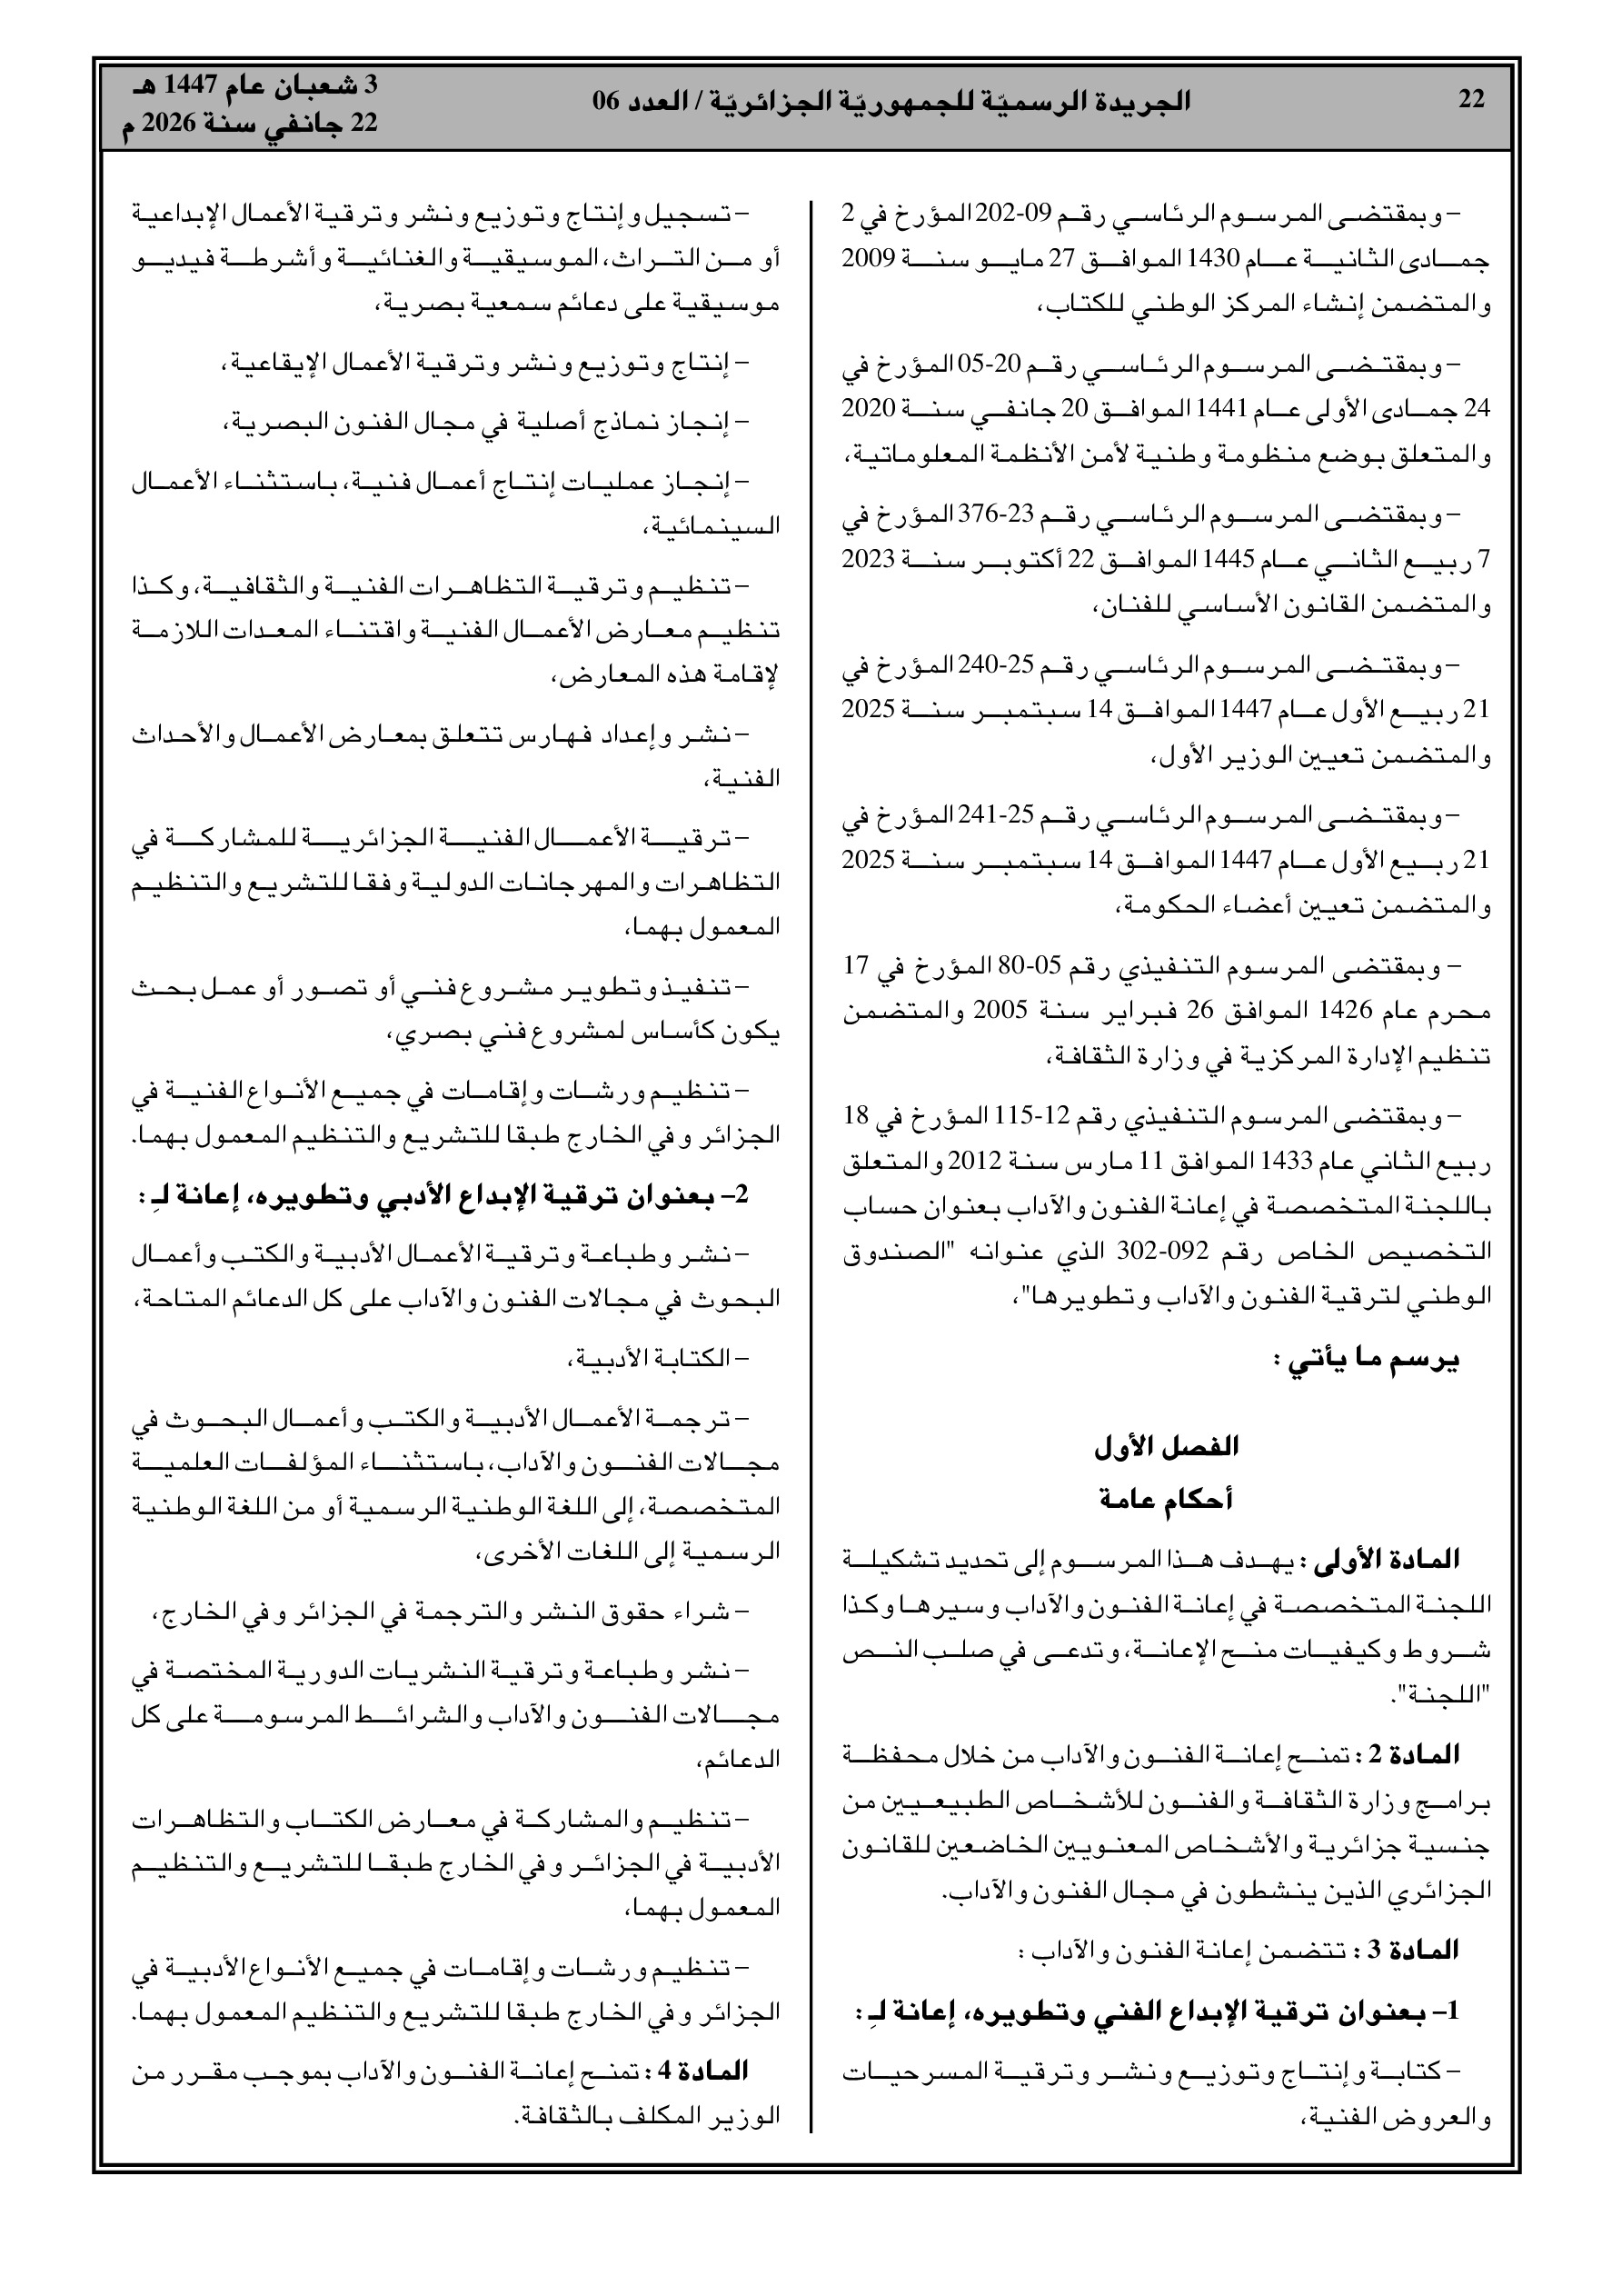 22
الجريدة الرسميّة للجمهوريّة الجزائريّة / العدد 06
3 شعبان عام 1447 هـ
22 جانفي سنة 2026 م
– وبمقتضى المرسوم الرئاسي رقم 09-202 المؤرخ في 2
جمادى الثانية عام 1430 الموافق 27 مايو سنة 2009
والمتضمن إنشاء المركز الوطني للكتاب،
– وبمقتضى المرسوم الرئاسي رقم 20-05 المؤرخ في
24 جمادى الأولى عام 1441 الموافق 20 جانفي سنة 2020
والمتعلق بوضع منظومة وطنية لأمن الأنظمة المعلوماتية،
– وبمقتضى المرسوم الرئاسي رقم 23-376 المؤرخ في
7 ربيع الثاني عام 1445 الموافق 22 أكتوبر سنة 2023
والمتضمن القانون الأساسي للفنان،
– وبمقتضى المرسوم الرئاسي رقم 25-240 المؤرخ في
21 ربيع الأول عام 1447 الموافق 14 سبتمبر سنة 2025
والمتضمن تعيين الوزير الأول،
– وبمقتضى المرسوم الرئاسي رقم 25-241 المؤرخ في
21 ربيع الأول عام 1447 الموافق 14 سبتمبر سنة 2025
والمتضمن تعيين أعضاء الحكومة،
– وبمقتضى المرسوم التنفيذي رقم 05-80 المؤرخ في 17
محرم عام 1426 الموافق 26 فبراير سنة 2005 والمتضمن
تنظيم الإدارة المركزية في وزارة الثقافة،
– وبمقتضى المرسوم التنفيذي رقم 12-115 المؤرخ في 18
ربيع الثاني عام 1433 الموافق 11 مارس سنة 2012 والمتعلق
باللجنة المتخصصة في إعانة الفنون والآداب بعنوان حساب
التخصيص الخاص رقم 092-302 الذي عنوانه "الصندوق
الوطني لترقية الفنون والآداب وتطويرها"،
يرسم ما يأتي :
الفصل الأول
أحكام عامة
المادة الأولى : يهدف هذا المرسوم إلى تحديد تشكيلة
اللجنة المتخصصة في إعانة الفنون والآداب وسيرها وكذا
شروط وكيفيات منح الإعانة، وتدعى في صلب النص
"اللجنة".
المادة 2 : تمنح إعانة الفنون والآداب من خلال محفظة
برامج وزارة الثقافة والفنون للأشخاص الطبيعيين من
جنسية جزائرية والأشخاص المعنويين الخاضعين للقانون
الجزائري الذين ينشطون في مجال الفنون والآداب.
المادة 3 : تتضمن إعانة الفنون والآداب :
1– بعنوان ترقية الإبداع الفني وتطويره، إعانة لـِ :
– كتابة وإنتاج وتوزيع ونشر وترقية المسرحيات
والعروض الفنية،
– تسجيل وإنتاج وتوزيع ونشر وترقية الأعمال الإبداعية
أو من التراث، الموسيقية والغنائية وأشرطة فيديو
موسيقية على دعائم سمعية بصرية،
– إنتاج وتوزيع ونشر وترقية الأعمال الإيقاعية،
– إنجاز نماذج أصلية في مجال الفنون البصرية،
– إنجاز عمليات إنتاج أعمال فنية، باستثناء الأعمال
السينمائية،
– تنظيم وترقية التظاهرات الفنية والثقافية، وكذا
تنظيم معارض الأعمال الفنية واقتناء المعدات اللازمة
لإقامة هذه المعارض،
– نشر وإعداد فهارس تتعلق بمعارض الأعمال والأحداث
الفنية،
– ترقية الأعمال الفنية الجزائرية للمشاركة في
التظاهرات والمهرجانات الدولية وفقا للتشريع والتنظيم
المعمول بهما،
– تنفيذ وتطوير مشروع فني أو تصور أو عمل بحث
يكون كأساس لمشروع فني بصري،
– تنظيم ورشات وإقامات في جميع الأنواع الفنية في
الجزائر وفي الخارج طبقا للتشريع والتنظيم المعمول بهما.
2– بعنوان ترقية الإبداع الأدبي وتطويره، إعانة لـِ :
– نشر وطباعة وترقية الأعمال الأدبية والكتب وأعمال
البحوث في مجالات الفنون والآداب على كل الدعائم المتاحة،
– الكتابة الأدبية،
– ترجمة الأعمال الأدبية والكتب وأعمال البحوث في
مجالات الفنون والآداب، باستثناء المؤلفات العلمية
المتخصصة، إلى اللغة الوطنية الرسمية أو من اللغة الوطنية
الرسمية إلى اللغات الأخرى،
– شراء حقوق النشر والترجمة في الجزائر وفي الخارج،
– نشر وطباعة وترقية النشريات الدورية المختصة في
مجالات الفنون والآداب والشرائط المرسومة على كل
الدعائم،
– تنظيم والمشاركة في معارض الكتاب والتظاهرات
الأدبية في الجزائر وفي الخارج طبقا للتشريع والتنظيم
المعمول بهما،
– تنظيم ورشات وإقامات في جميع الأنواع الأدبية في
الجزائر وفي الخارج طبقا للتشريع والتنظيم المعمول بهما.
المادة 4 : تمنح إعانة الفنون والآداب بموجب مقرر من
الوزير المكلف بالثقافة.